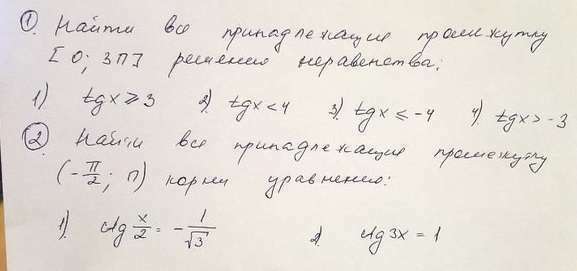 ① Найти все принадлежащие промежутку
[0; 3π] решения неравенства:
1) tgx ⩾ 3 2) tgx < 4 3) tgx ⩽ -4 4) tgx > -3
② Найти все принадлежащие промежутку
(-π/2; π) корни уравнения:
1) ctg x/2 = - 1/√3 2) ctg 3x = 1